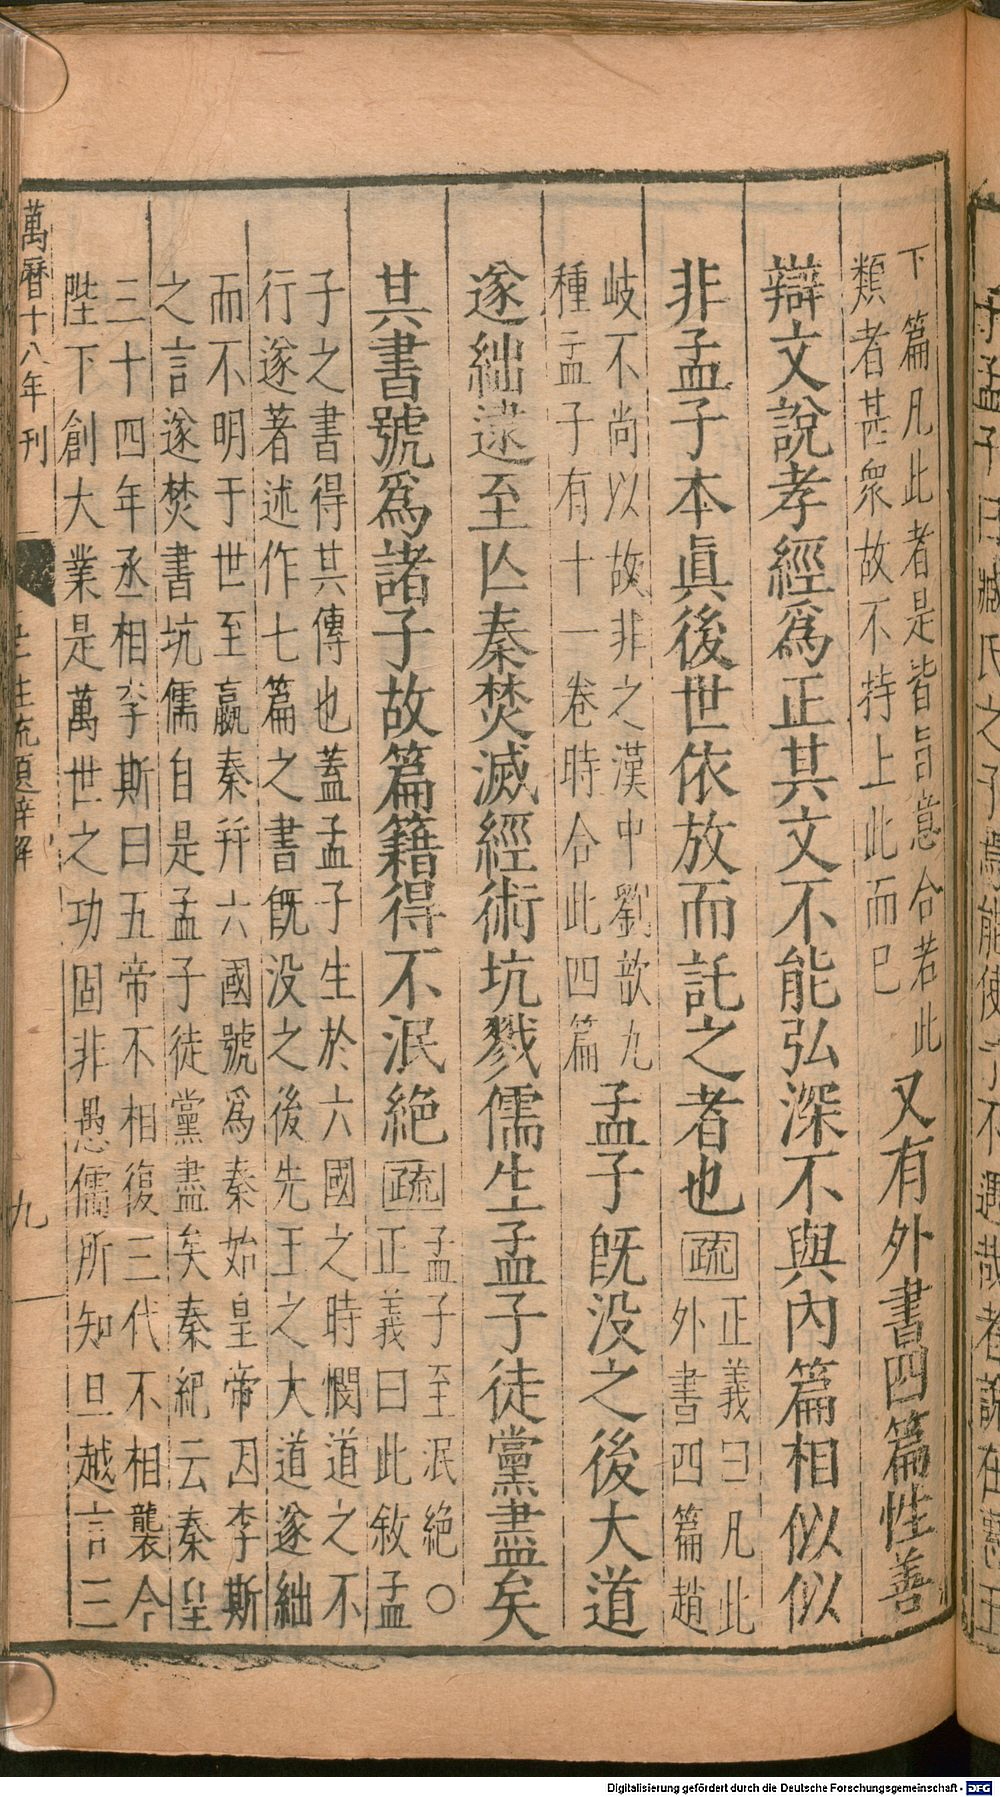 下篇凡此者是皆旨意合若此
類者甚衆故不特上此而已
又有外書四篇性善
辯文說孝經爲正其文不能弘深不與內篇相似似
非孟子本眞後世依放而託之者也
疏
正義曰凡此
外書四篇趙
岐不尚以故非之漢中劉歆九
種孟子有十一卷時合此四篇
孟子旣没之後大道
遂絀逮至亾秦焚滅經術坑戮儒生孟子徒黨盡矣
其書號爲諸子故篇籍得不泯絶
疏
孟子至泯絶〇
正義曰此敘孟
子之書得其傳也蓋孟子生於六國之時憫道之不
行遂著述作七篇之書旣没之後先王之大道遂絀
而不明于世至嬴秦幷六國號爲秦始皇帝因李斯
之言遂焚書坑儒自是孟子徒黨盡矣秦紀云秦皇
三十四年丞相李斯曰五帝不相復三代不相襲今
陛下創大業是萬世之功固非愚儒所知且越言三
萬曆十八年刊
九
Digitalisierung gefördert durch die Deutsche Forschungsgemeinschaft - DFG